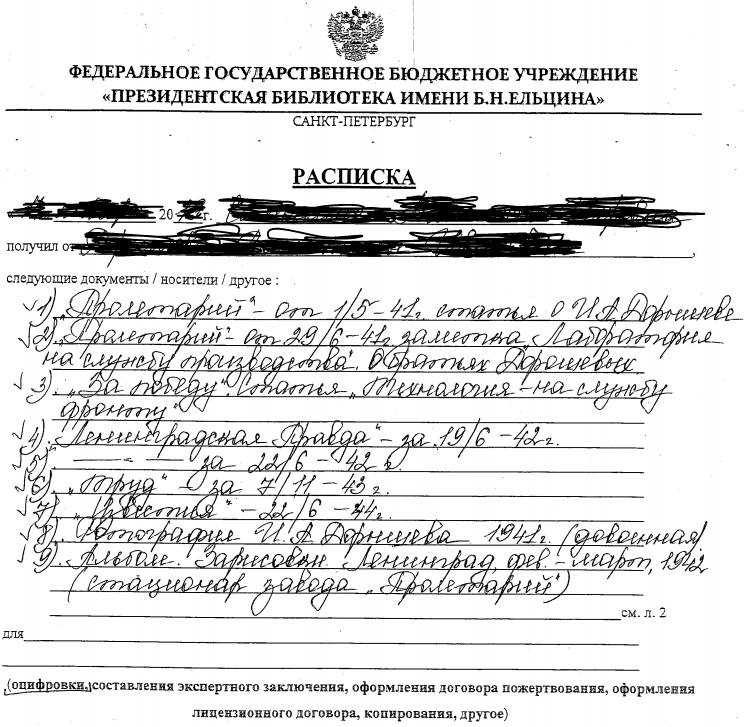 ФЕДЕРАЛЬНОЕ ГОСУДАРСТВЕННОЕ БЮДЖЕТНОЕ УЧРЕЖДЕНИЕ
«ПРЕЗИДЕНТСКАЯ БИБЛИОТЕКА ИМЕНИ Б.Н.ЕЛЬЦИНА»
САНКТ-ПЕТЕРБУРГ
РАСПИСКА
20 г.
получил от
следующие документы / носители / другое :
1) „Пролетарий" - от 1/5-41г. статья о И.А.Дорошеве
2) „Пролетарий" - от 29/6-41г. заметка „Лаборатория
на службу производства". О братьях Дорошевых
3) „За победу". Статья „Технология - на службу
фронту"
4). Ленинградская Правда" - за 19/6 - 42 г.
5) — — — за 22/6 - 42 г.
6) „Труд" - за 7/11 - 43 г.
7) „Известия" - 22/6 - 44 г.
8). Фотография И.А.Дорошева 1941г. (довоенная)
9). Альбом. Зарисовки Ленинград, фев. - март, 1942
(стационар завода „Пролетарий")
см. л. 2
для
(оцифровки, составления экспертного заключения, оформления договора пожертвования, оформления
лицензионного договора, копирования, другое)